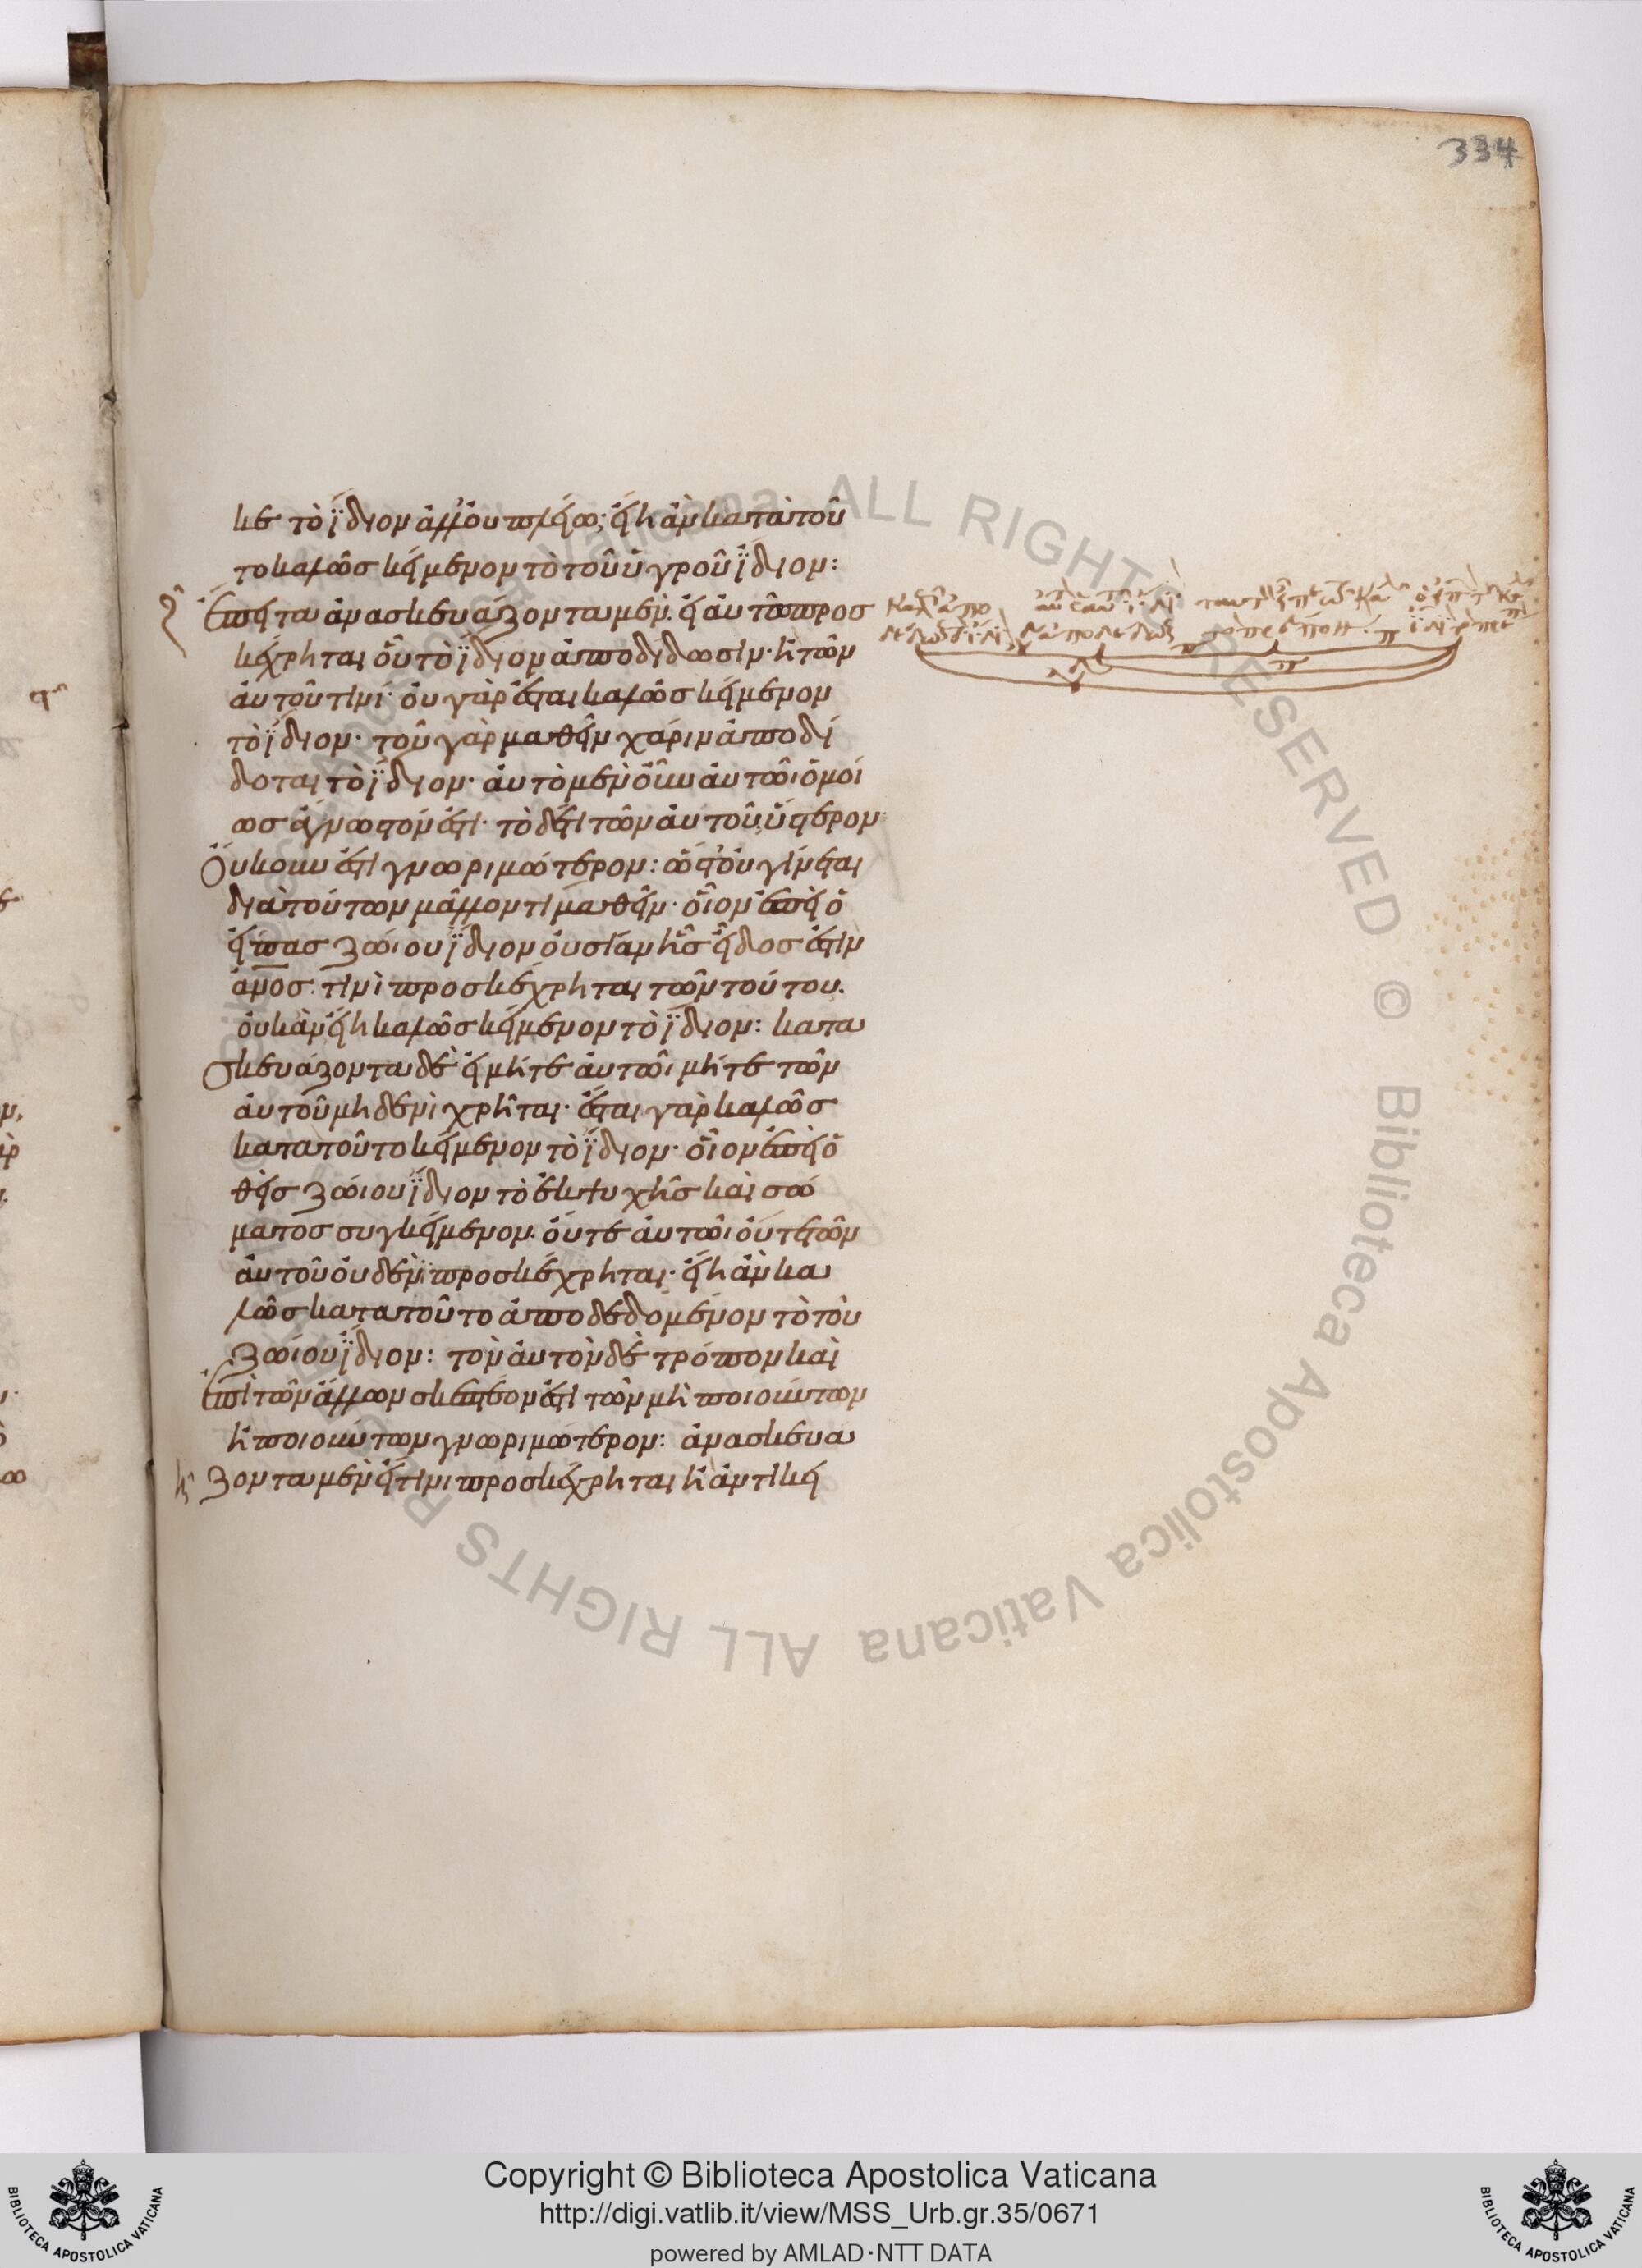 334
κε τὸ ἴδιον ἀλλ' οὐ πλείω· εἴη ἂν κατὰ τοῦ
το καλῶς κείμενον τὸ τοῦ ὑγροῦ ἴδιον:
Ἔπειτα ἀνασκευάζοντα μὲν· εἰ αὐτῶ προσ
κέχρηται οὗ τὸ ἴδιον ἀποδίδωσιν· ἢ τῶν
αὐτοῦ τινί· οὐ γὰρ ἔσται καλῶς κείμενον
τὸ ἴδιον· τοῦ γὰρ μαθεῖν χάριν ἀποδί
δοται τὸ ἴδιον· αὐτὸ μὲν οὖν αὑτῶι ὁμοί
ως ἄγνωστόν ἐστι· τὸ δέ τι τῶν αὐτοῦ, ὕστερον·
Οὔκουν ἐστὶ γνωριμώτερον: ὥστ' οὐ γίνεται
διὰ τούτων μᾶλλόν τι μαθεῖν· οἷον ἐπεὶ ὁ
εἴπας ζώιου ἴδιον οὐσίαν ἧς εἶδος ἐστὶν
ἄνος· τινὶ προσκέχρηται τῶν τούτου.
οὐκ ἂν εἴη καλῶς κείμενον τὸ ἴδιον: κατα
σκευάζοντα δὲ εἰ μήτε αὐτῶι μήτε τῶν
αὐτοῦ μηδενὶ χρῆται· ἔσται γὰρ καλῶς
κατὰ τοῦτο κείμενον τὸ ἴδιον· οἷον ἐπεὶ ὁ
θεὶς ζώιου ἴδιον τὸ ἐκ ψυχῆς καὶ σώ
ματος συγκείμενον. οὔτε αὐτῶι οὔτε τῶν
αὐτοῦ οὐδενὶ προσκέχρηται· εἴη ἂν κα
λῶς κατὰ τοῦτο ἀποδεδομένον τὸ τοῦ
ζώιου ἴδιον: τὸν αὐτὸν δὲ τρόπον καὶ
ἐπὶ τῶν ἄλλων σκεπτέον ἐστὶ τῶν μὴ ποιούντων
ἢ ποιούντων γνωριμώτερον: ἀνασκευά
ζοντα μὲν εἴ τινι προσκέχρηται ἢ ἀντικει
Copyright © Biblioteca Apostolica Vaticana
http://digi.vatlib.it/view/MSS_Urb.gr.35/0671
powered by AMLAD·NTT DATA